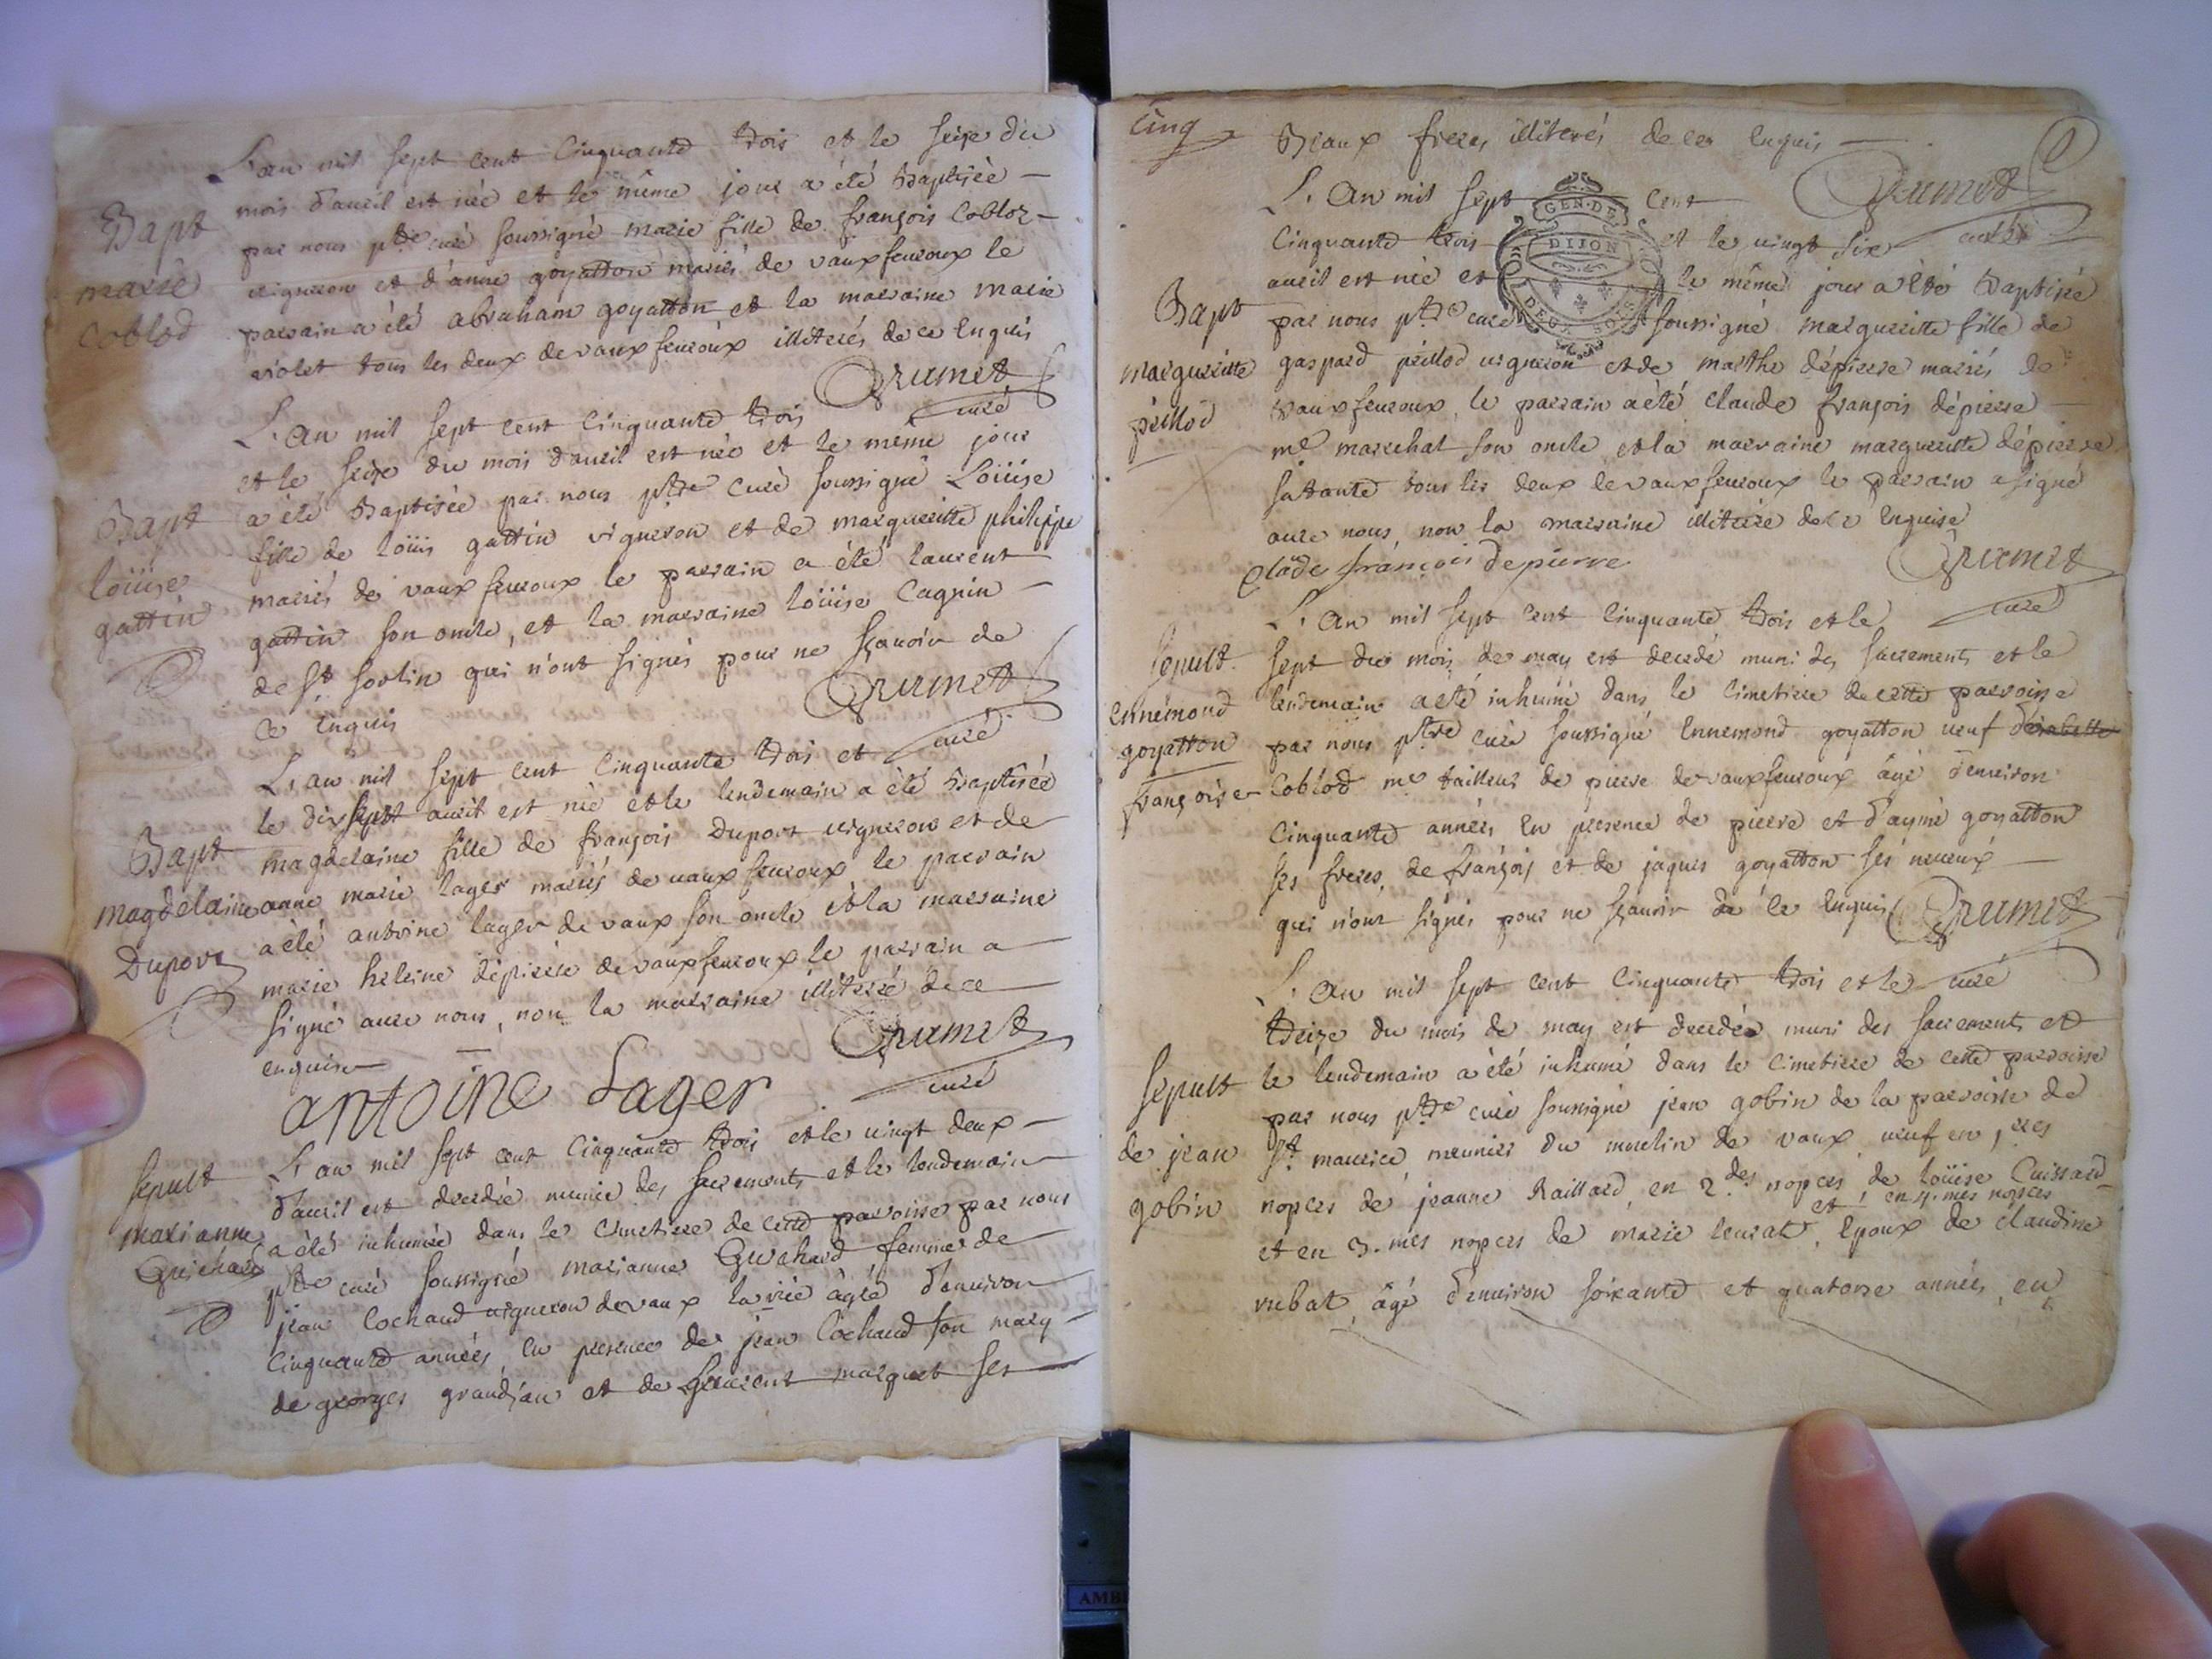 L'an mil sept cent cinquante trois et le seize du
mois d'avril est née et le même jour a été Baptisée
par nous ptre curé soussigné marie fille de françois Cobloz
vigneron et d'anne goyatton mariés de vaux fevroux le
parrain a été abraham goyatton et la marraine marie
violet tous les deux de vaux fevroux illiterés de ce Enquis
Bapt
marie
coblod
Brumet
curé
L'an mil sept cent cinquante trois
et le seize du mois d'avril est née et le même jour
a été Baptisée par nous ptre curé soussigné Loüise
fille de loüis gattin vigneron et de margueritte philippe
mariés de vaux fevroux le parrain a été laurent
gattin son oncle, et la marraine loüise Cagnin
de St sorlin qui n'ont signés pour ne sçavoir de
ce Enquis
Bapt
loüise
gattin
Brumet
curé
L'an mil sept cent cinquante trois et
le dix sept avril est née et le lendemain a été Baptisée
magdelaine fille de françois Duport vigneron et de
anne marie lager mariés de vaux fevroux le parrain
a été antoine lager de vaux son oncle et la marraine
marie heleine dépierre de vaux fevroux le parrain a
signé avec nous, non la marraine illiterée de ce
enquise
Bapt
magdelaine
Duport
Brumet
curé
antoine Lager
L'an mil sept cent cinquante trois et le vingt deux
d'avril est decedée munie des sacrements et le lendemain
a été inhumée dans le cimetiere de cette parroisse par nous
ptre curé soussigné marianne Guichard femme de
jean Cochaud vigneron de vaux la vie âgée d'environ
cinquante années en presence de jean Cochaud son mary
de georges grandjan et de laurent marquet ses
sepult
marianne
Guichard
cinq
Beaux freres illiterés de ce enquis
Brumet
curé
L'An mil sept cent
GEN. DE
DIJON
DEUX SOLS
cinquante trois et le vingt six
avril est née et le même jour a été Baptisée
par nous ptre curé soussigné margueritte fille de
gaspard peillod vigneron et de marthe dépierre mariés de
vaux fevroux, le parrain a été claude françois dépierre
me marechal son oncle et la marraine margueritte dépierre
sa tante tous les deux de vaux fevroux le parrain a signé
avec nous, non la marraine illiterée de ce Enquise
Bapt
margueritte
peillod
Clade françois depierre
Brumet
curé
L'An mil sept cent cinquante trois et le
sept du mois de may est decedé muni des sacrements et le
lendemain a été inhumé dans le cimetiere de cette parroisse
par nous ptre curé soussigné Ennemond goyatton veuf
françoise Coblod me tailleur de pierre de vaux fevroux âgé d'environ
cinquante années en presence de pierre et d'aymé goyatton
ses freres, de françois et de jaques goyatton ses neveux
qui n'ont signés pour ne sçavoir de ce enquis
sepult.
ennemond
goyatton
Brumet
curé
L'An mil sept cent cinquante trois et le
treize du mois de may est decedé muni des sacrements et
le lendemain a été inhumé dans le cimetiere de cette parroisse
par nous ptre curé soussigné jean gobin de la parroisse de
St maurice meunier du moulin de vaux veuf en 1res
nopces de jeanne Raillard, en 2des nopces de loüise Cuissard
et en 3.mes nopces de marie leurat, et en 4.mes nopces Epoux de claudine
rubat, âgé d'environ soixante et quatorze années, en
sepult
de jean
gobin